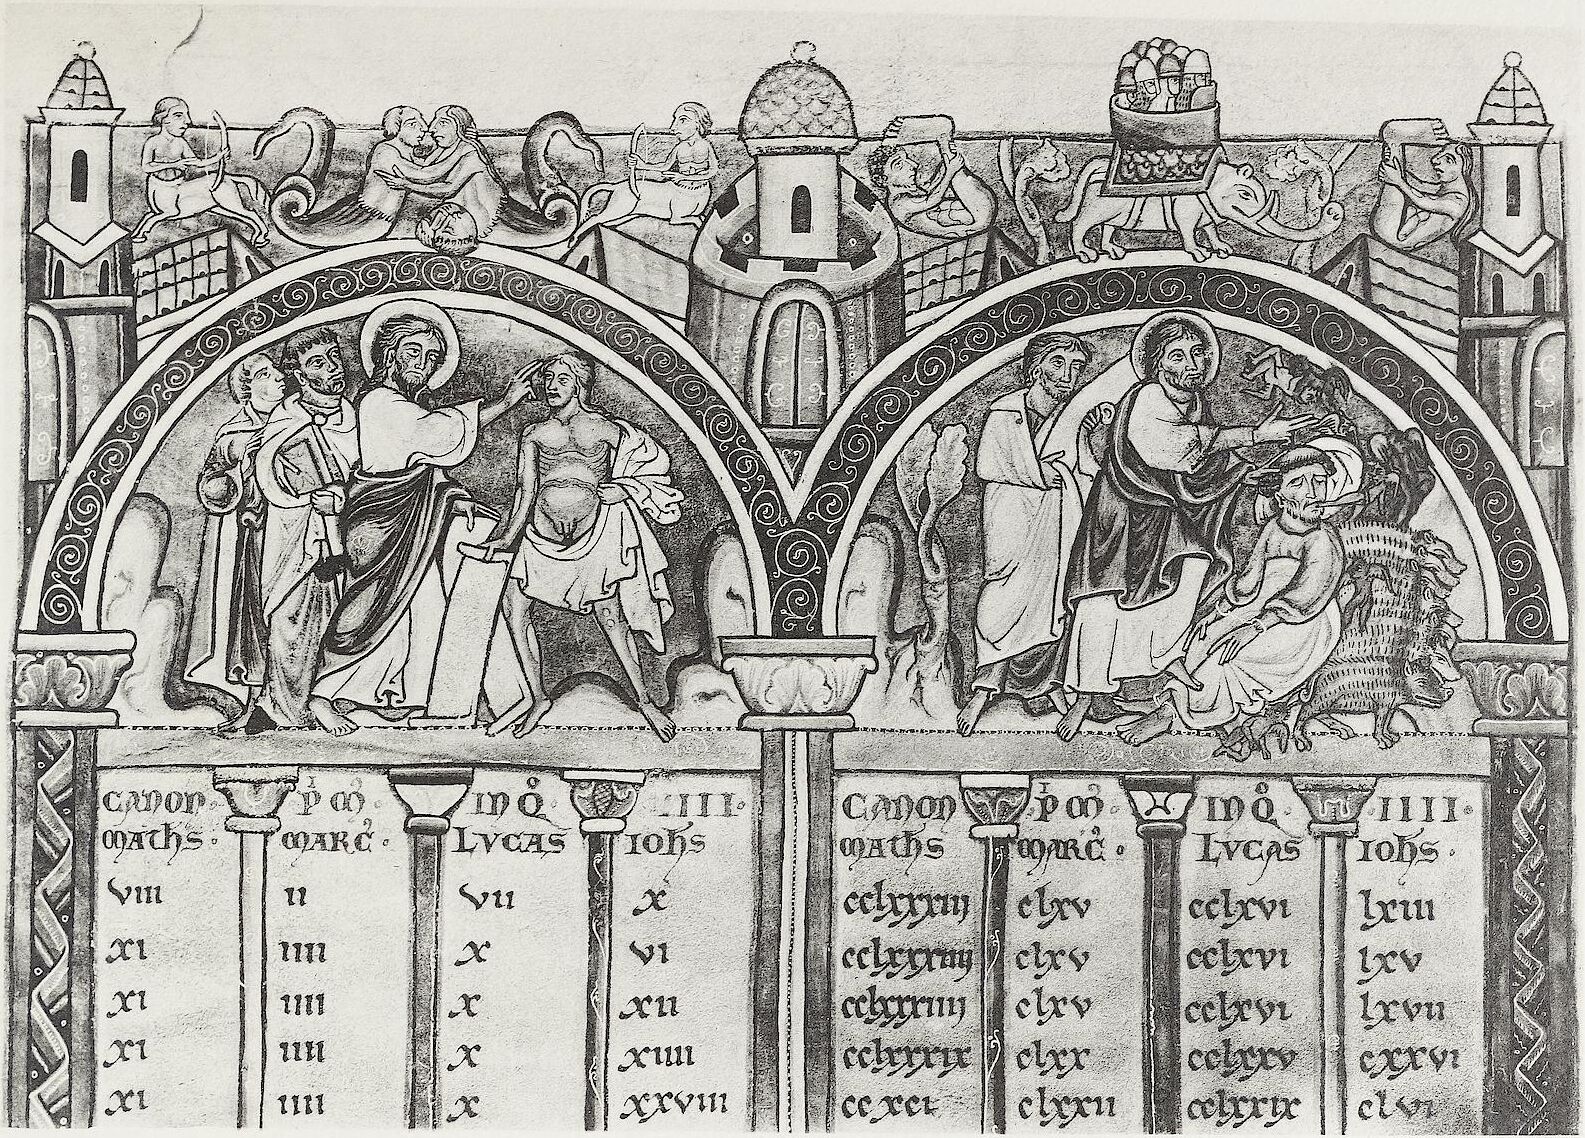 CANON· P̄ M̄· IN Q̊· ·IIII·
MATHS· MARC̄· LVCAS IOHS
viii ii vii x
xi iiii x vi
xi iiii x xii
xi iiii x xiiii
xi iiii x xxviii
CANON P̄ M̄· IN Q̊· ·IIII·
MATHS MARC̄· LVCAS IOHS·
cclxxxiiij clxv cclxvi lxiii
clxv cclxvi lxv
clxv cclxvi lxvii
cclxxxix clxx cclxxv cxxvi
ccxci clxxii cclxxix clvi